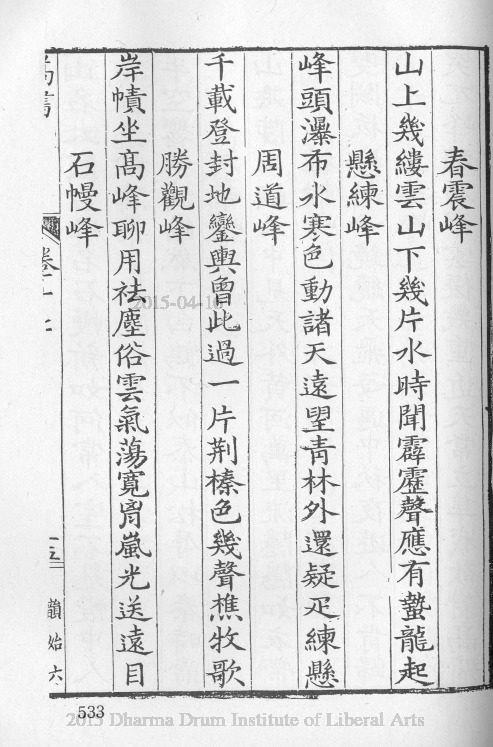 春震峰
山上幾縷雲山下幾片水時聞霹靂聲應有蟄龍起
懸練峰
峰頭瀑布水寒色動諸天遠望青林外還疑疋練懸
周道峰
千載登封地鑾輿曾此過一片荆榛色幾聲樵牧歌
勝觀峰
岸幘坐高峰聊用祛塵俗雲氣蕩寬胷嵐光送遠目
石幔峰
卷十七
韻始六
533
2015-04-10
2015 Dharma Drum Institute of Liberal Arts